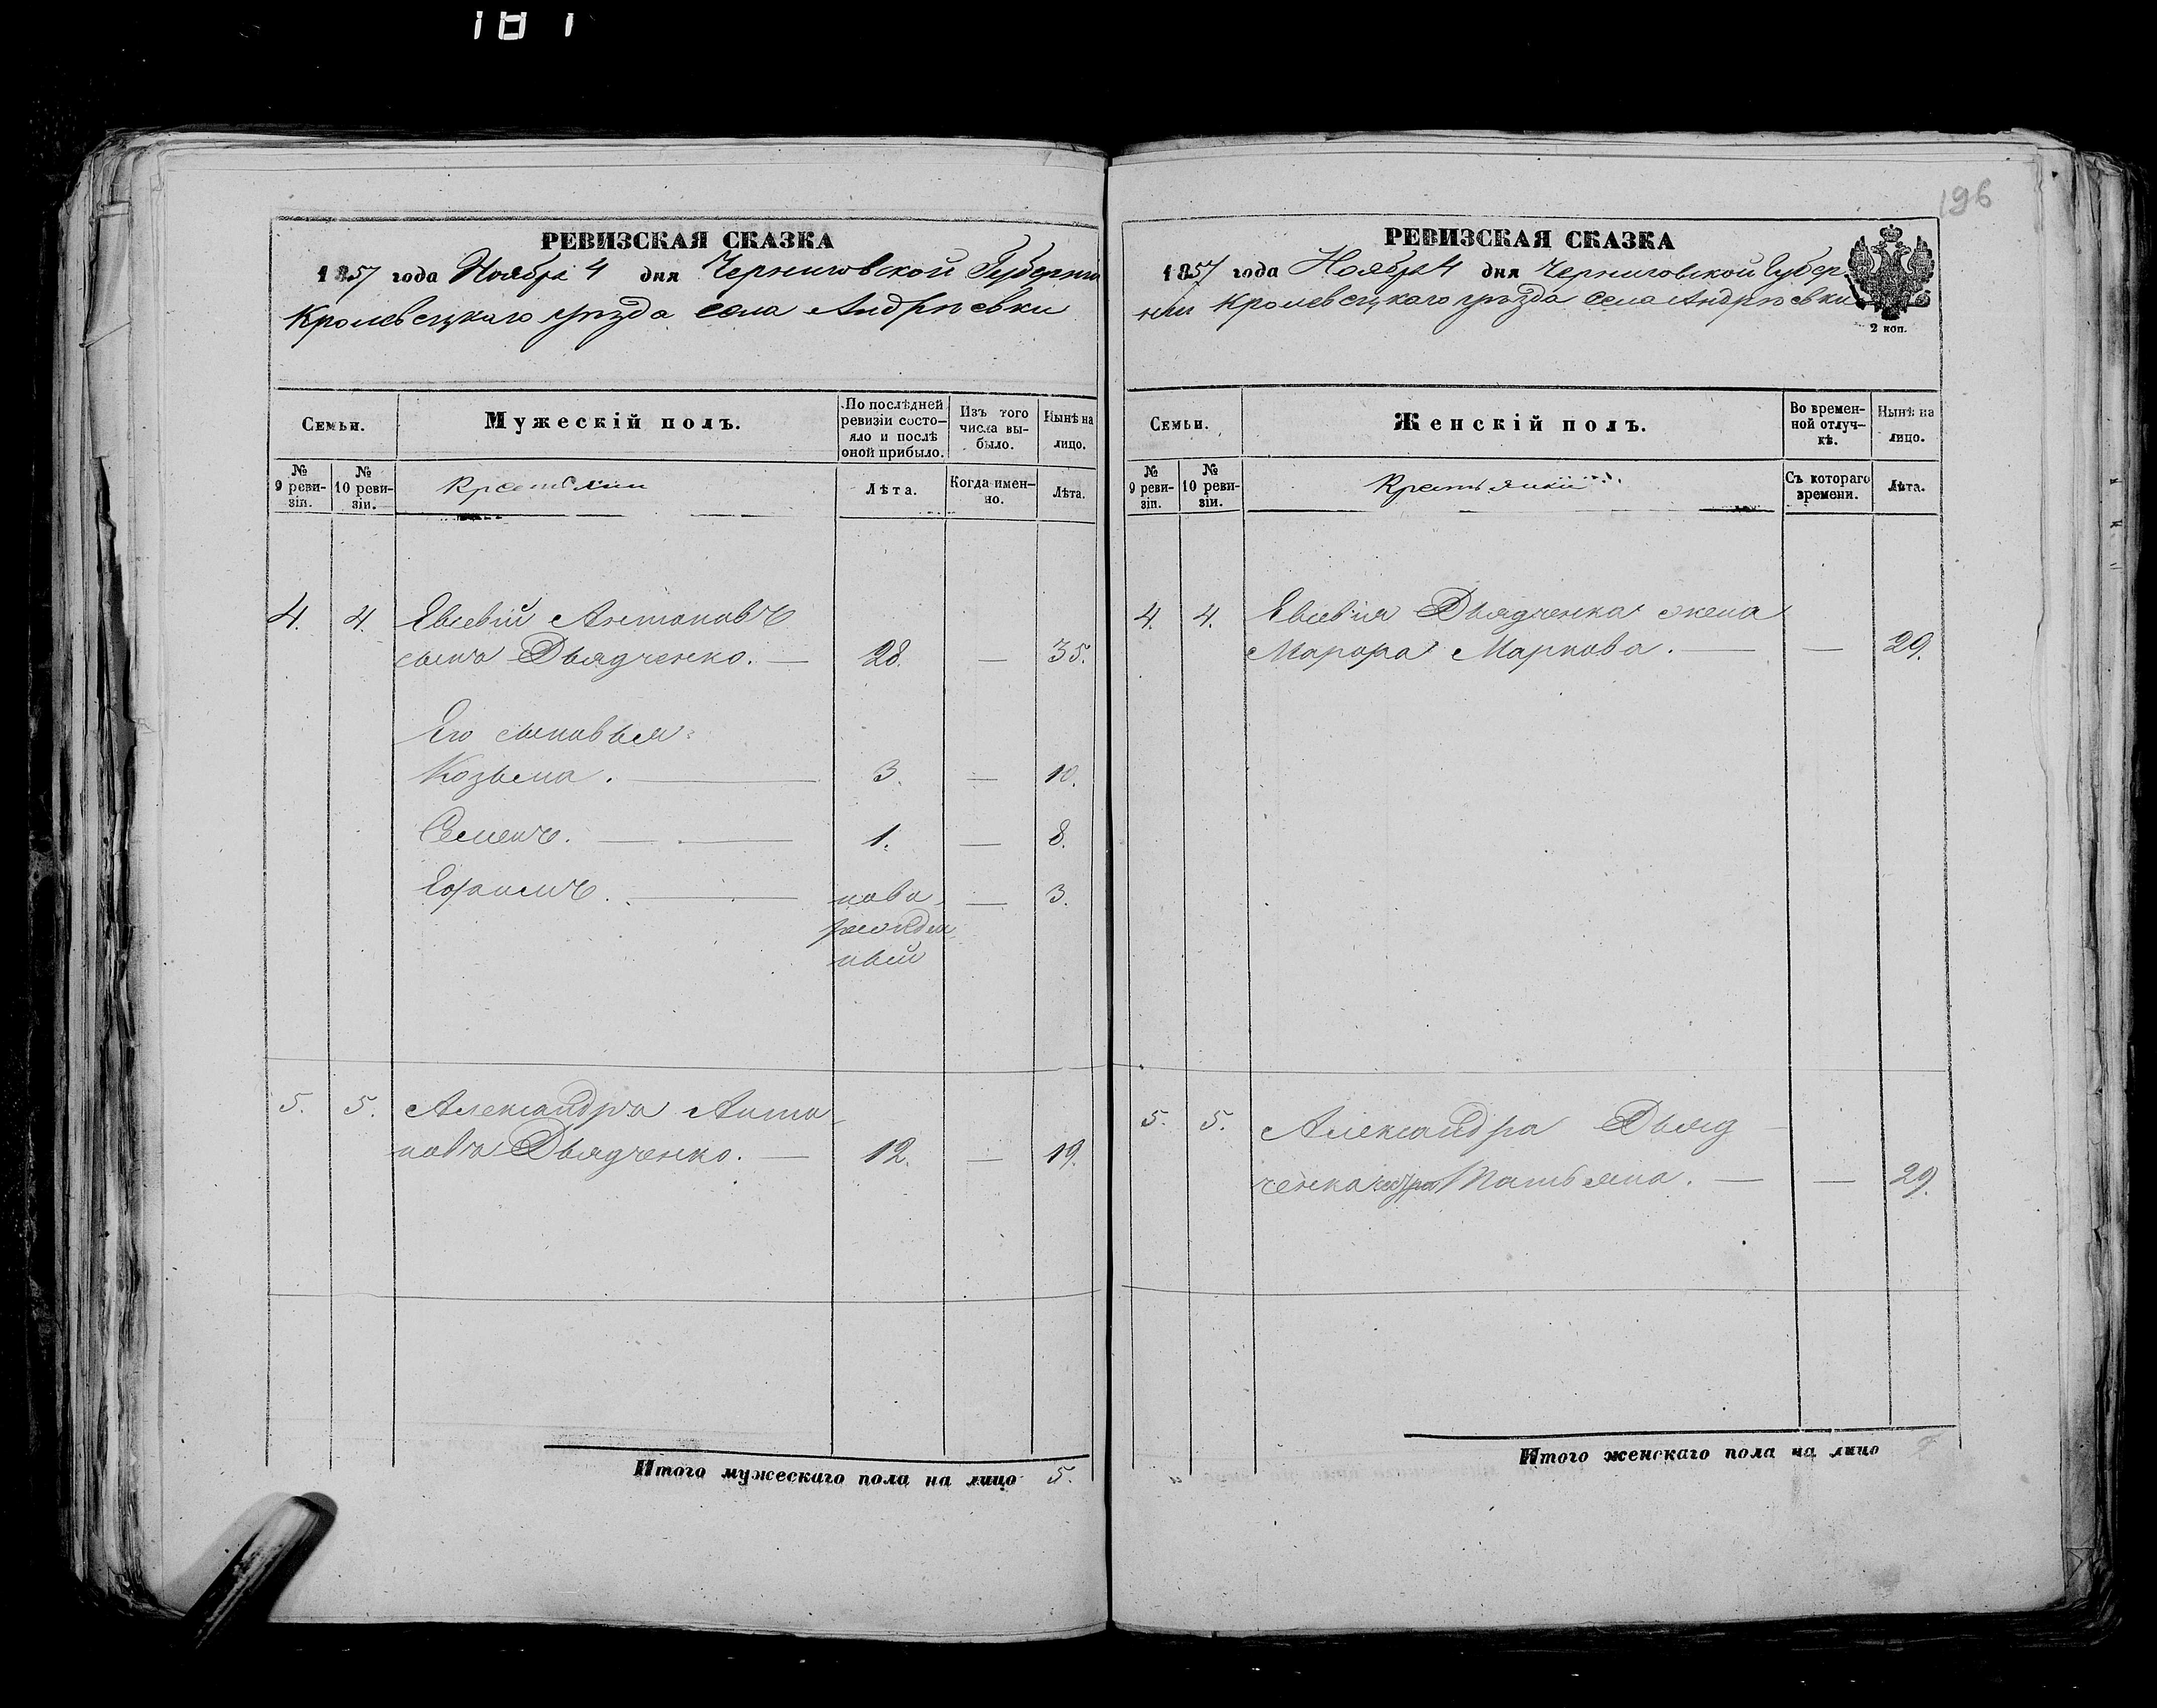 181
РЕВИЗСКАЯ СКАЗКА
1857 года Ноября 4 дня Черниговской Губерніи
Кролевецкаго уѣзда села Андрѣевки
Семьи.
Мужескій полъ.
По послѣдней ревизіи состояло и послѣ оной прибыло.
Изъ того числа выбыло.
Нынѣ на лицо.
№ 9 ревизіи.
№ 10 ревизіи.
Крестьяни
Лѣта.
Когда именно.
Лѣта.
4. 4. Евсевій Антоновъ
сынъ Дьядченко. — 28. — 35.
Его сыновья:
Козьма. — 3. — 10.
Семенъ. — 1. — 8.
Ефимъ. — ново- — 3.
рожден-
ный
5. 5. Александръ Анто-
новъ Дьядченко. — 12. — 19.
Итого мужескаго пола на лицо 5.
196
РЕВИЗСКАЯ СКАЗКА
1857 года Ноября 4 дня Черниговской Губер-
ніи Кролевецкаго уѣзда села Андрѣевки
2 коп.
Семьи.
Женскій полъ.
Во временной отлучкѣ.
Нынѣ на лицо.
№ 9 ревизіи.
№ 10 ревизіи.
Крестьянки
Съ котораго времени.
Лѣта.
4. 4. Евсевія Дьядченка жена
Марфа Маркова. — — 29.
5. 5. Александра Дьяд-
ченка сестра Татьяна. — — 29.
Итого женскаго пола на лицо